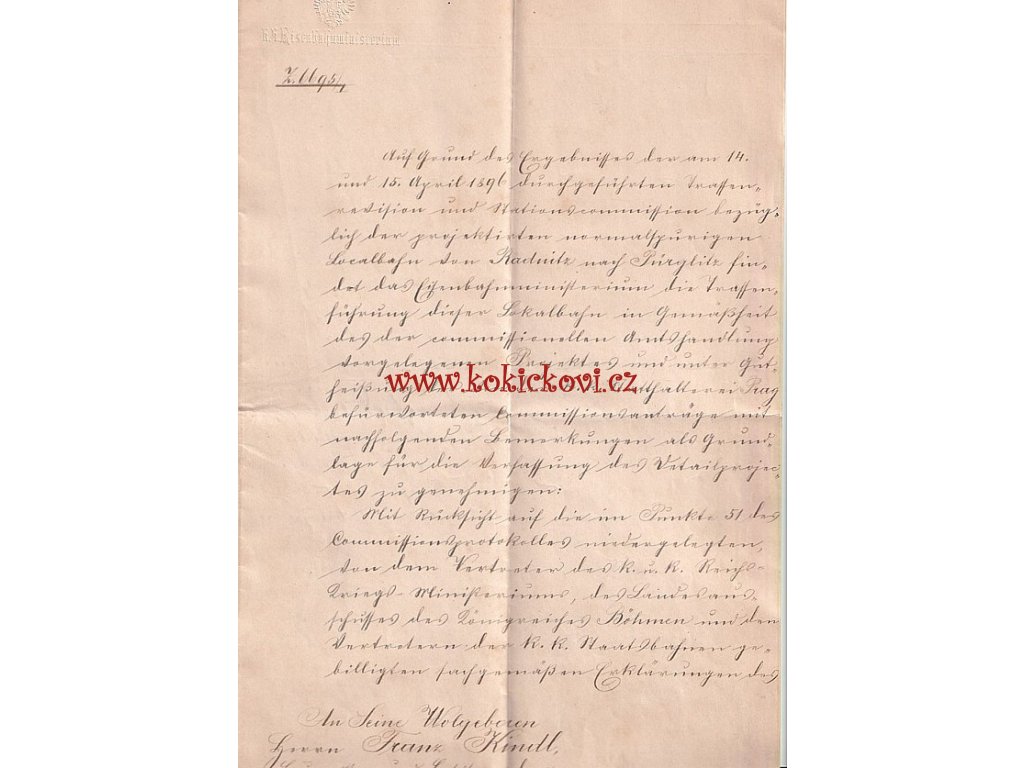 K.K. Eisenbahnministerium
Z. 6695/1
Auf Grund des Ergebnisses der am 14.
und 15. April 1896 durchgeführten Trassen-
revision und Stationscommission bezüg-
lich der projektirten normalspurigen
Localbahn von Radnitz nach Pürglitz fin-
det das Eisenbahnministerium die Trassen-
führung dieser Lokalbahn in Gemäßheit
des der commissionellen Amtshandlung
vorgelegenen Projektes und unter Gut-
heißung der Statthalterei Prag
www.kokickovi.cz
befürworteten Commissionsanträge mit
nachfolgenden Bemerkungen als Grund-
lage für die Verfassung des Detailprojec-
tes zu genehmigen:
Mit Rücksicht auf die im Punkte 51 des
Commissionsprotokolles niedergelegten,
von dem Vertreter des k. u. k. Reichs-
Kriegs-Ministeriums, des Landesaus-
schusses des Königreiches Böhmen und den
Vertretern der k. k. Staatsbahnen ge-
billigten sachgemäßen Erklärungen des
An Seine Wolgeboren
Herrn Franz Kindl,